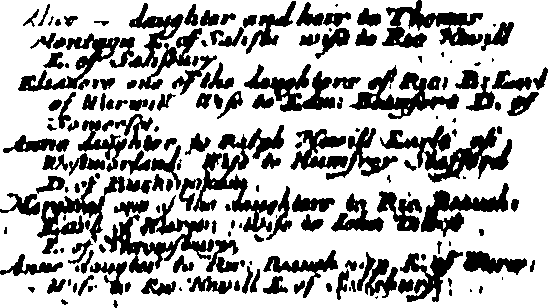 Alice daughter and heir to Thomas
Montagu E. of Salisb: wife to Ric: Nevill
E. of Salisbury
Eleanore one of the daughters of Ric: B: Earl
of Warwick Wife to Edm: Beauford D. of
Somerset.
Anne daughter to Ralph Nevill Earle of
Westmorland. Wife to Humfrey Stafford
D. of Buckingham.
Margaret one of the daughters to Ric: Beauch:
Earl of Warw: Wife to Iohn Talbot
E. of Shrewsbury
Anne daughter to Ric: Beauch E. of Warw:
Wife to Ric Nevill E. of Salisbury